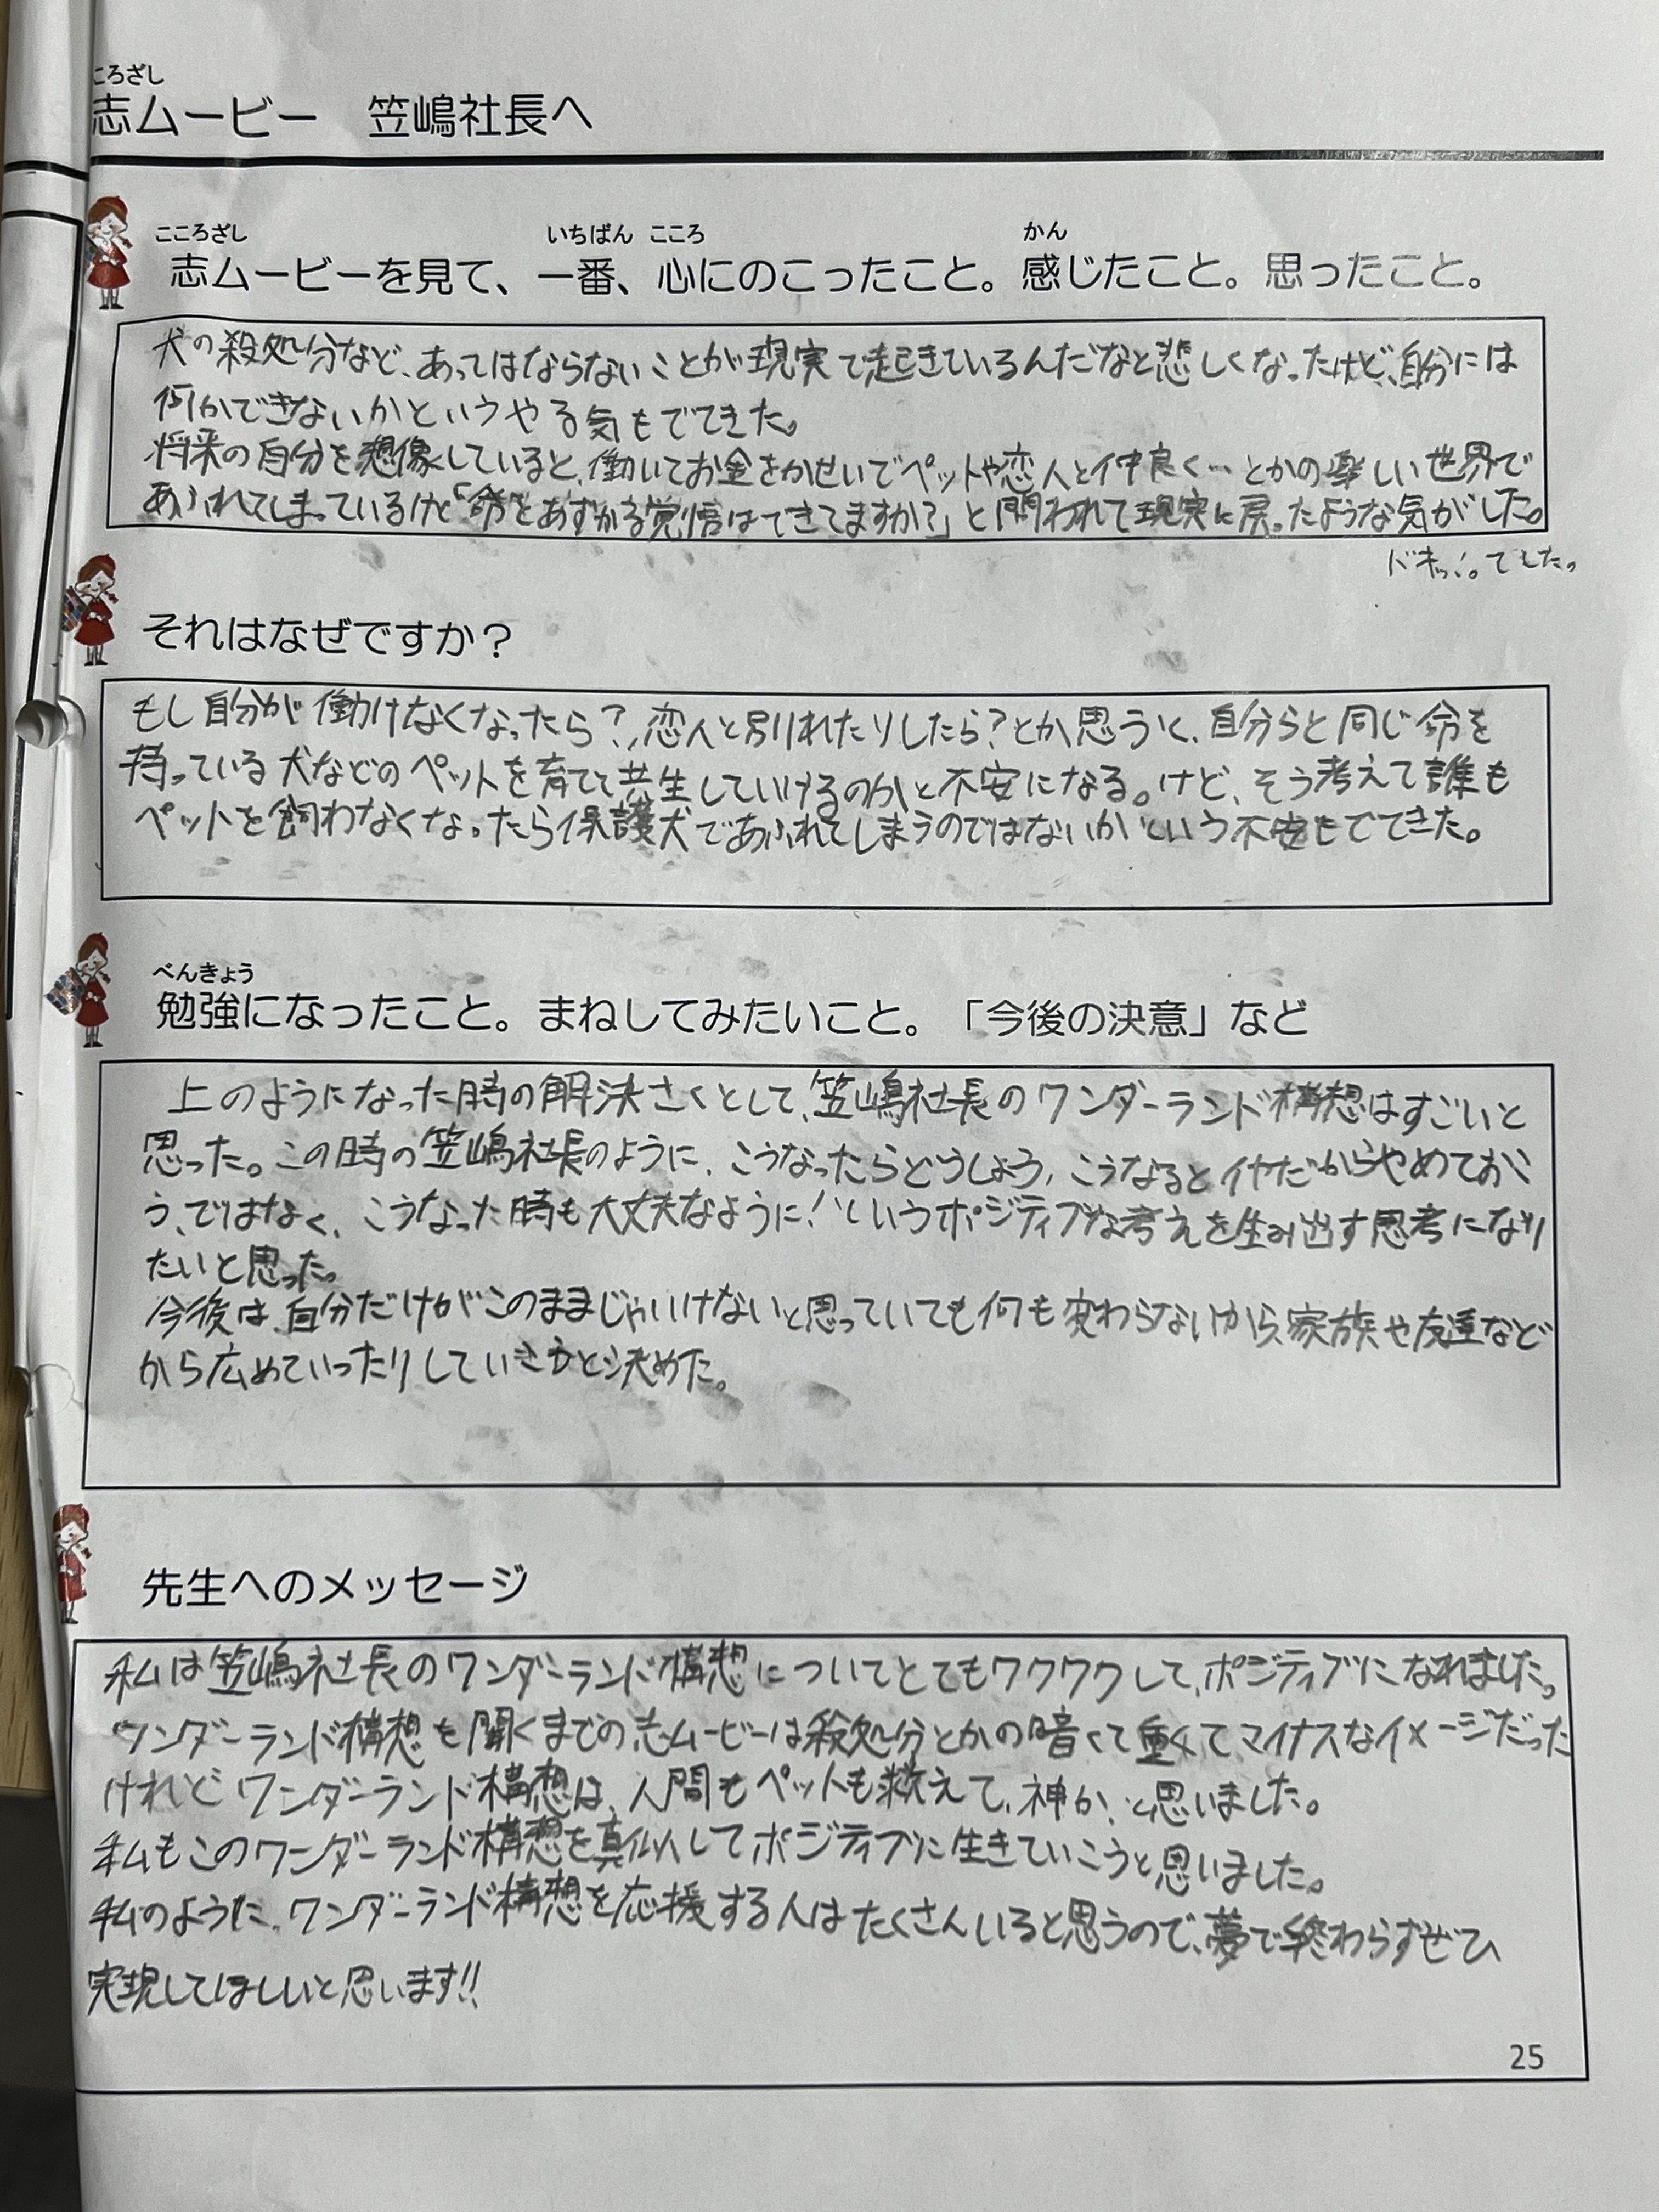 ころざし
志ムービー　笠嶋社長へ
こころざし　いちばん　こころ　かん
志ムービーを見て、一番、心にのこったこと。感じたこと。思ったこと。
犬の殺処分など、あってはならないことが現実で起きているんだなと悲しくなったけど、自分には
何かできないかというやる気もでてきた。
将来の自分を想像していると、働いてお金をかせいでペットや恋人と仲良く…とかの楽しい世界で
あふれてしまっているけど「命をあずかる覚悟はできてますか?」と問われて現実に戻ったような気がした。
ドキッ!。でした。
それはなぜですか？
もし自分が働けなくなったら?、恋人と別れたりしたら?とか思うと、自分らと同じ命を
持っている犬などのペットを育てて共生していけるのかと不安になる。けど、そう考えて誰も
ペットを飼わなくなったら保護犬であふれてしまうのではないかという不安もでてきた。
べんきょう
勉強になったこと。まねしてみたいこと。「今後の決意」など
上のようになった時の解決さくとして、笠嶋社長のワンダーランド構想はすごいと
思った。この時の笠嶋社長のように、こうなったらどうしよう、こうなるとイヤだからやめておこ
う、ではなく、こうなった時も大丈夫なように!というポジティブな考えを生み出す思考になり
たいと思った。
今後は、自分だけがこのままじゃいけないと思っていても何も変わらないから、家族や友達など
から広めていったりしていこうと決めた。
先生へのメッセージ
私は笠嶋社長のワンダーランド構想についてとてもワクワクして、ポジティブになれました。
ワンダーランド構想を聞くまでの志ムービーは殺処分とかの暗くて重くてマイナスなイメージだった
けれどワンダーランド構想は、人間もペットも救えて、神か、と思いました。
私もこのワンダーランド構想を真似してポジティブに生きていこうと思いました。
私のように、ワンダーランド構想を応援する人はたくさんいると思うので、夢で終わらずぜひ
実現してほしいと思います!!
25